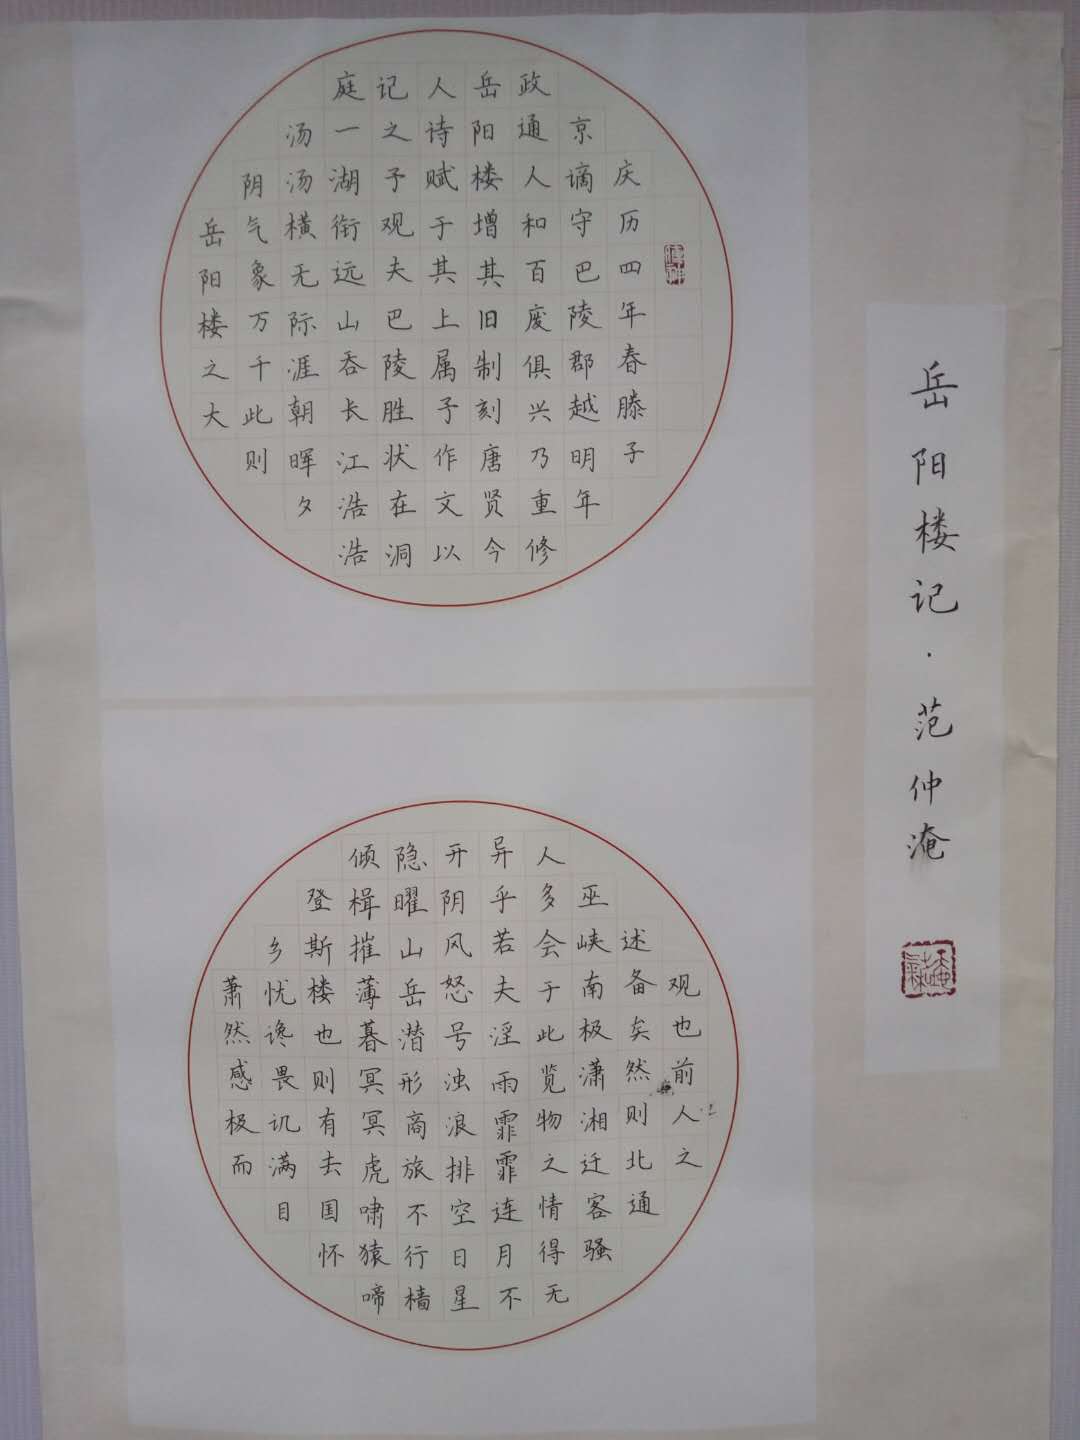 岳阳楼记·范仲淹
庆历四年春滕子
京谪守巴陵郡越明年
政通人和百废俱兴乃重修
岳阳楼增其旧制刻唐贤今
人诗赋于其上属予作文以
记之予观夫巴陵胜状在洞
庭一湖衔远山吞长江浩浩
汤汤横无际涯朝晖夕
阴气象万千此则
岳阳楼之大
观也前人之
述备矣然则北通
巫峡南极潇湘迁客骚
人多会于此览物之情得无
异乎若夫淫雨霏霏连月不
开阴风怒号浊浪排空日星
隐曜山岳潜形商旅不行樯
倾楫摧薄暮冥冥虎啸猿啼
登斯楼也则有去国怀
乡忧谗畏讥满目
萧然感极而